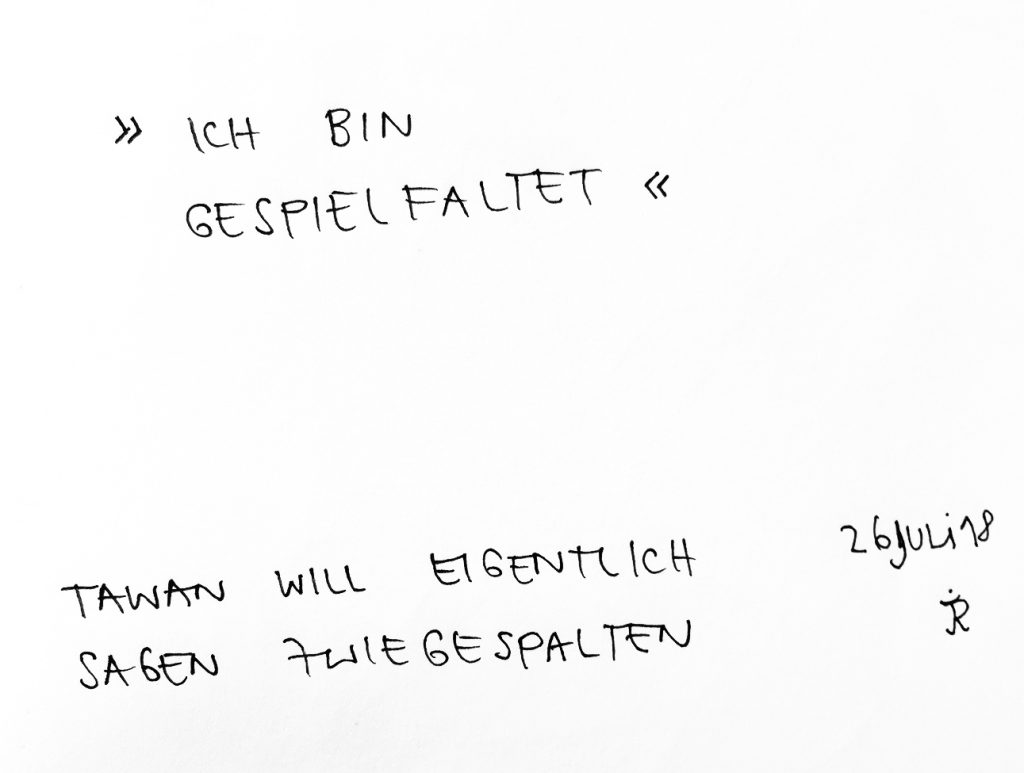 » ICH BIN
GESPIELFALTET «
TAWAN WILL EIGENTLICH
SAGEN ZWIEGESPALTEN
26 JULI 18
JR